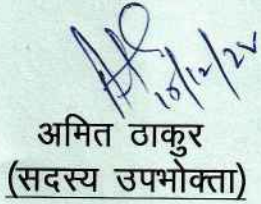 10/12/24
अमित ठाकुर
(सदस्य उपभोक्ता)